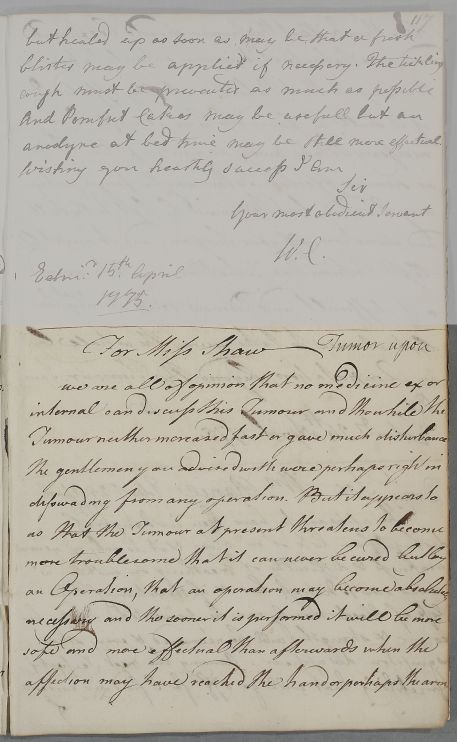 117
but healed up as soon as may be that a fresh
blister may be applied if necessery. The tickling
cough must be prevented as much as possible
And Pomfret Cakes may be usefull but an
anodyne at bed time may be still more effectual.
Wishing you hearthly success I am
Sir
Your most obedient Servant
W. C.
Edinr. 15th April
1775.
For Miss Shaw Tumor upon
we are all of opinion that no medicine ex or
internal can discuss this Tumour and tho while the
Tumour neither increased fast or gave much disturbance
the gentlemen you advised with were perhaps right in
disswading from any operation. But it appears to
us that the Tumour at present threatens to become
more troublesome that it can never be cured but by
an Operation, that an operation may become absolutely
necessary and the sooner it is performed it will be more
safe and more effectual than afterwards when the
affection may have reached the hand or perhaps the arm